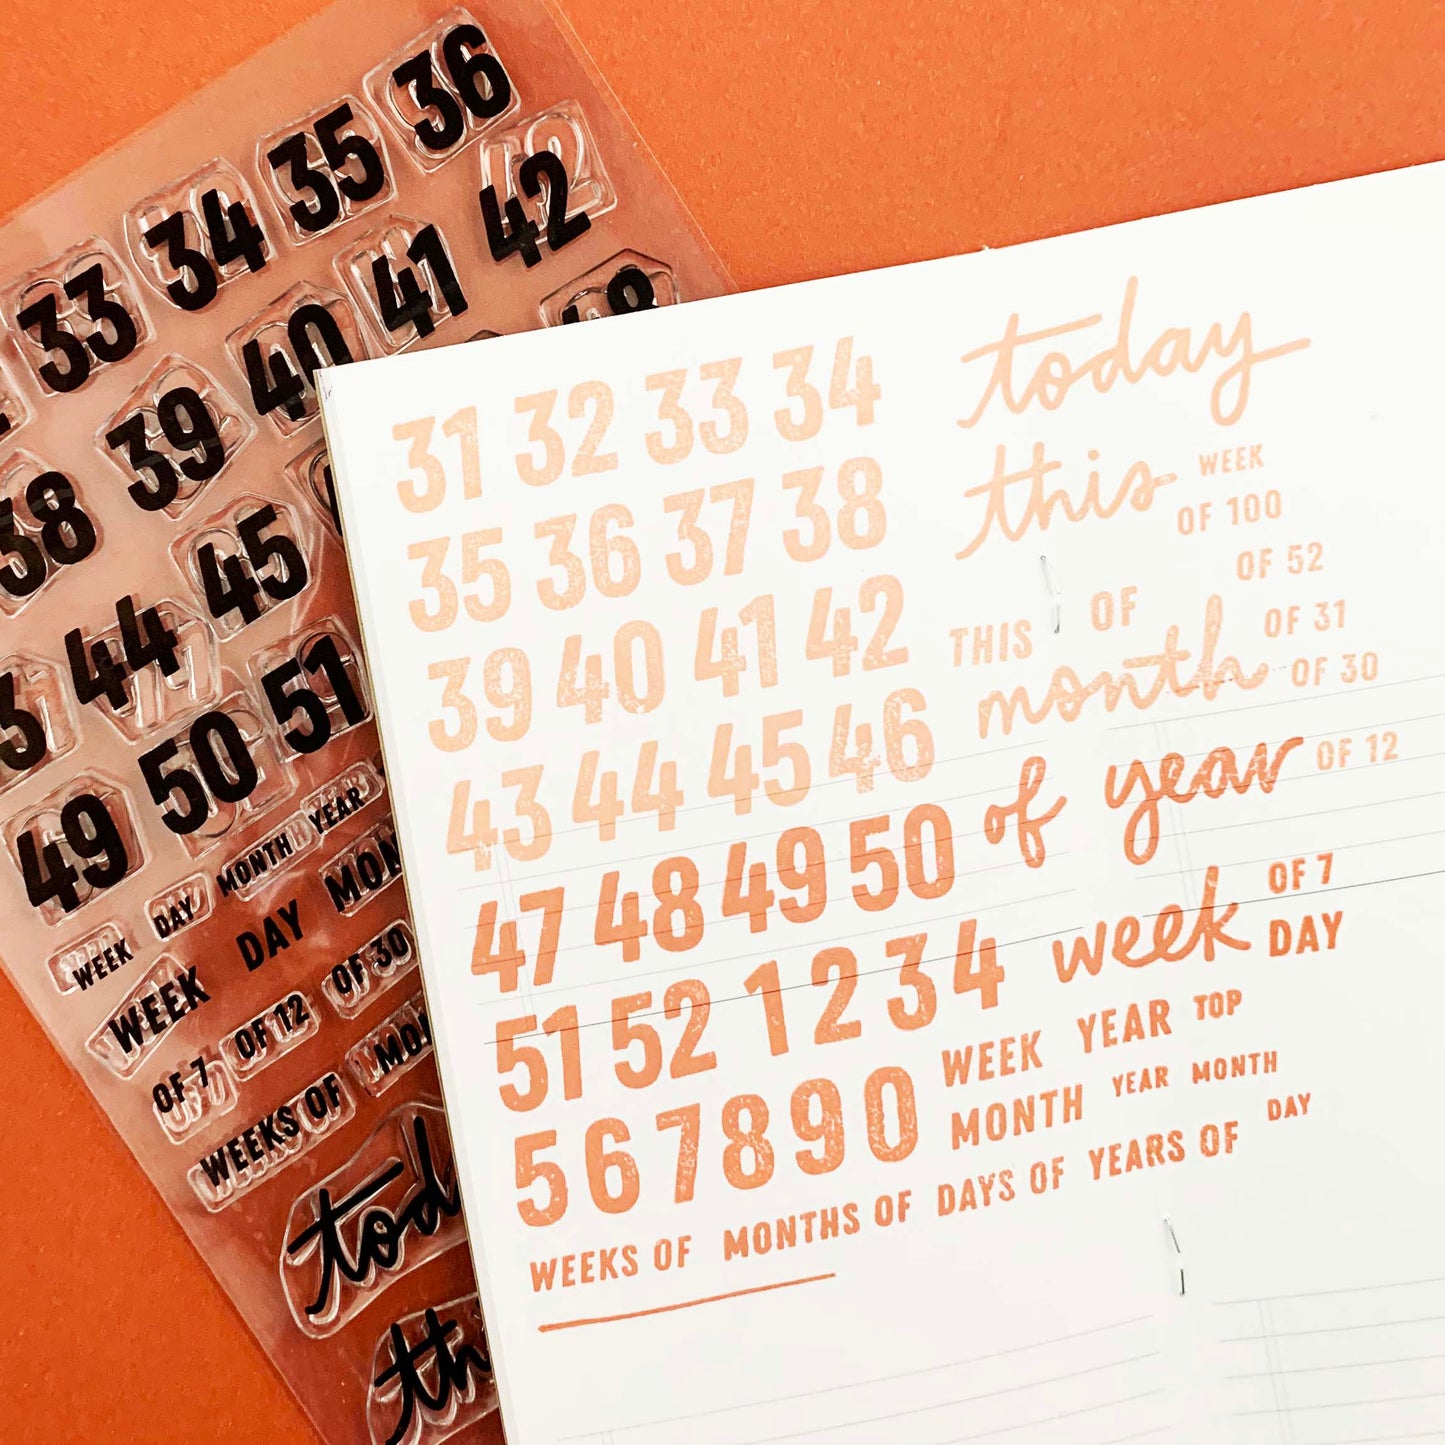 36
35
34
33
42
41
40
39
38
45
44
51
50
49
YEAR
MONTH
DAY
WEEK
DAY
WEEK
OF 30
OF 12
OF 7
WEEKS OF
31 32 33 34
35 36 37 38
39 40 41 42
43 44 45 46
47 48 49 50
51 52 1 2 3 4
5 6 7 8 9 0
today
this WEEK
OF 100
OF 52
THIS OF
OF 31
month OF 30
of year OF 12
OF 7
week DAY
WEEK YEAR TOP
MONTH YEAR MONTH
DAY
WEEKS OF MONTHS OF DAYS OF YEARS OF